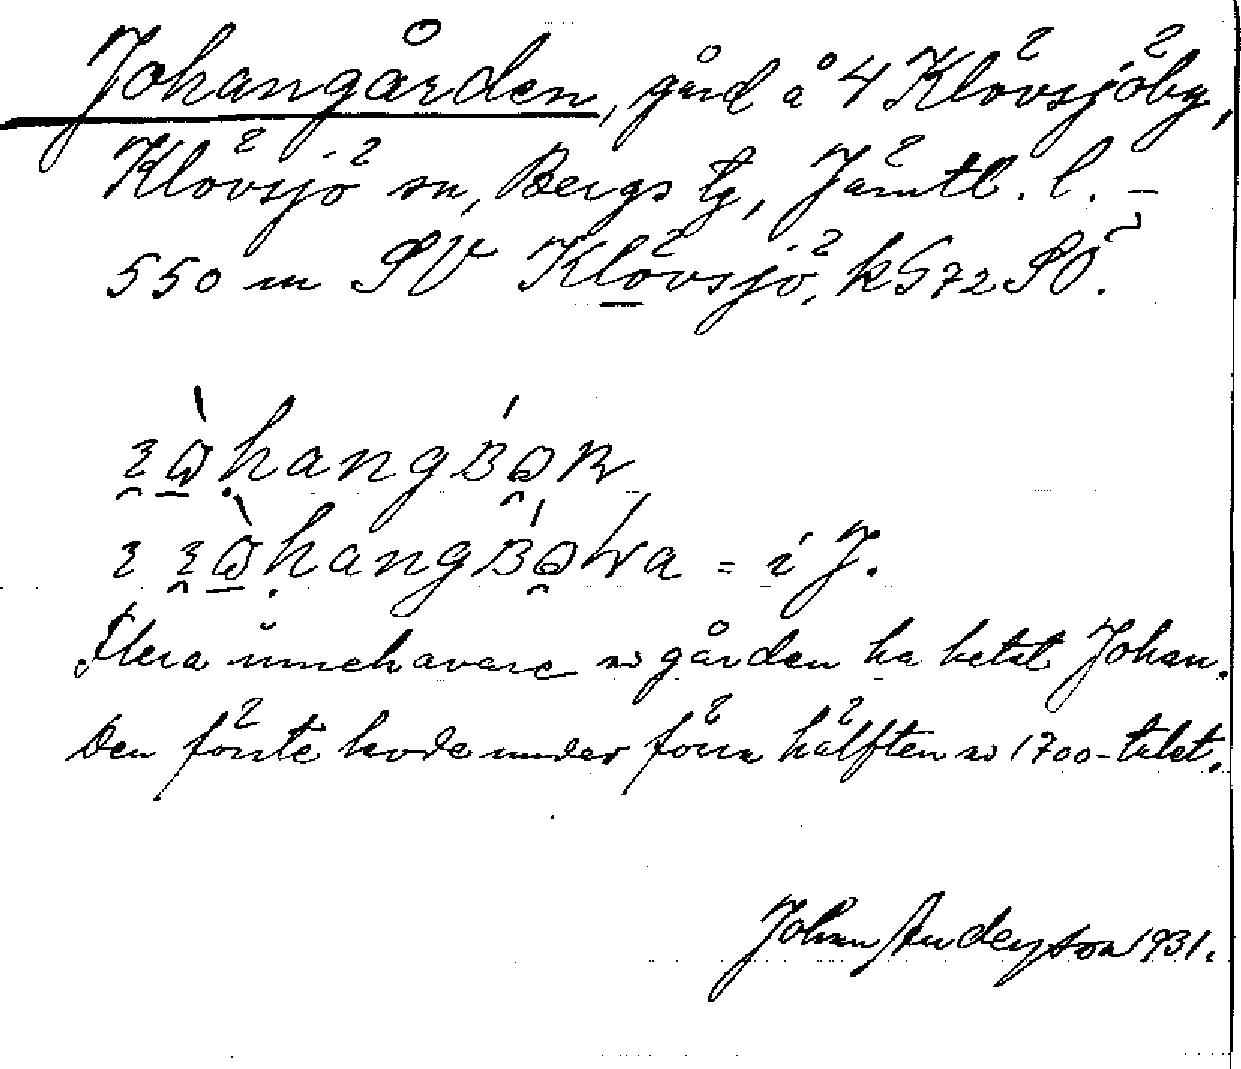 Johangården, gård å 4 Klövsjöby,
Klövsjö sn, Bergs tg, Jämtl. l. –
550 m SV Klövsjö, k S72SÖ.
= i J.
Flera innehavare av gården ha hetat Johan.
Den förste levde under förra hälften av 1700-talet.
Johan Anderson 1931.